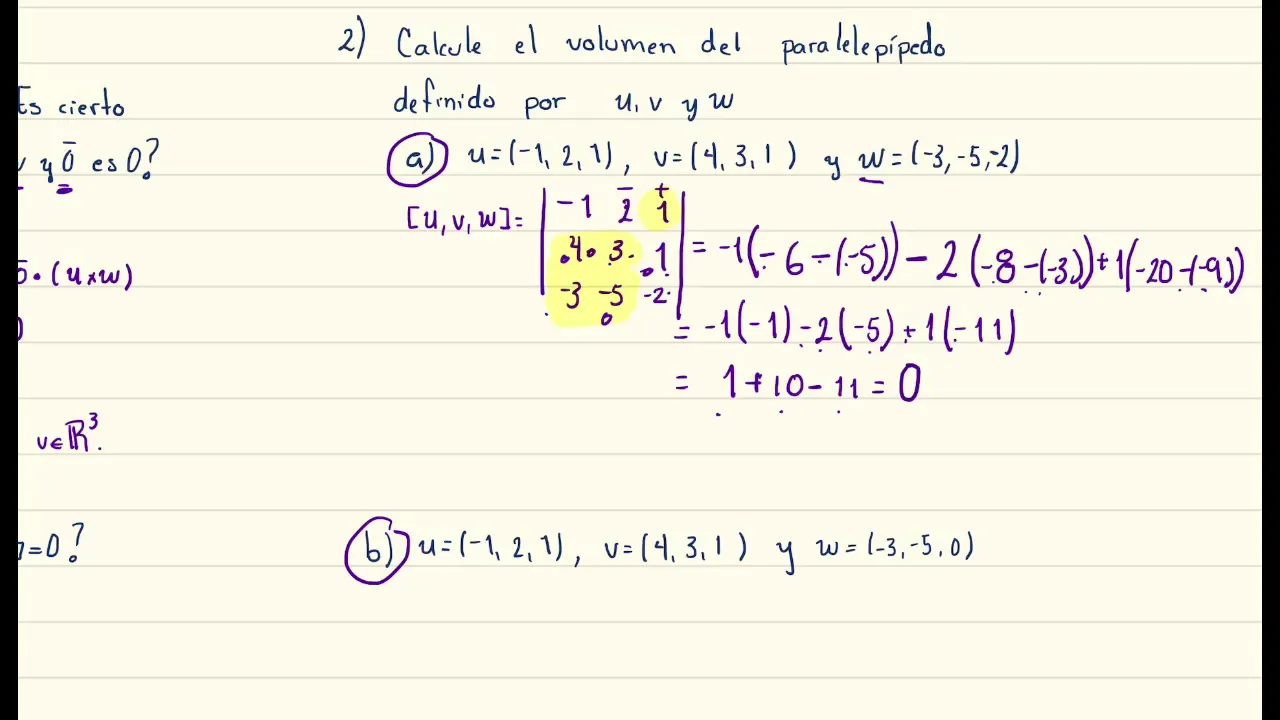 2) Calcule el volumen del paralelepípedo
definido por u, v y w
Es cierto
y 0̅ es 0?
a) u=(-1, 2, 1), v=(4, 3, 1) y w=(-3, -5, -2)
[u, v, w]= | -1 2 1 |
| 4 3 1 | = -1(-6-(-5)) - 2(-8-(-3)) + 1(-20-(-9))
| -3 -5 -2 |
• (u×w)
= -1(-1) - 2(-5) + 1(-11)
= 1 + 10 - 11 = 0
v∈ℝ³.
=0?
b) u=(-1, 2, 1), v=(4, 3, 1) y w=(-3, -5, 0)